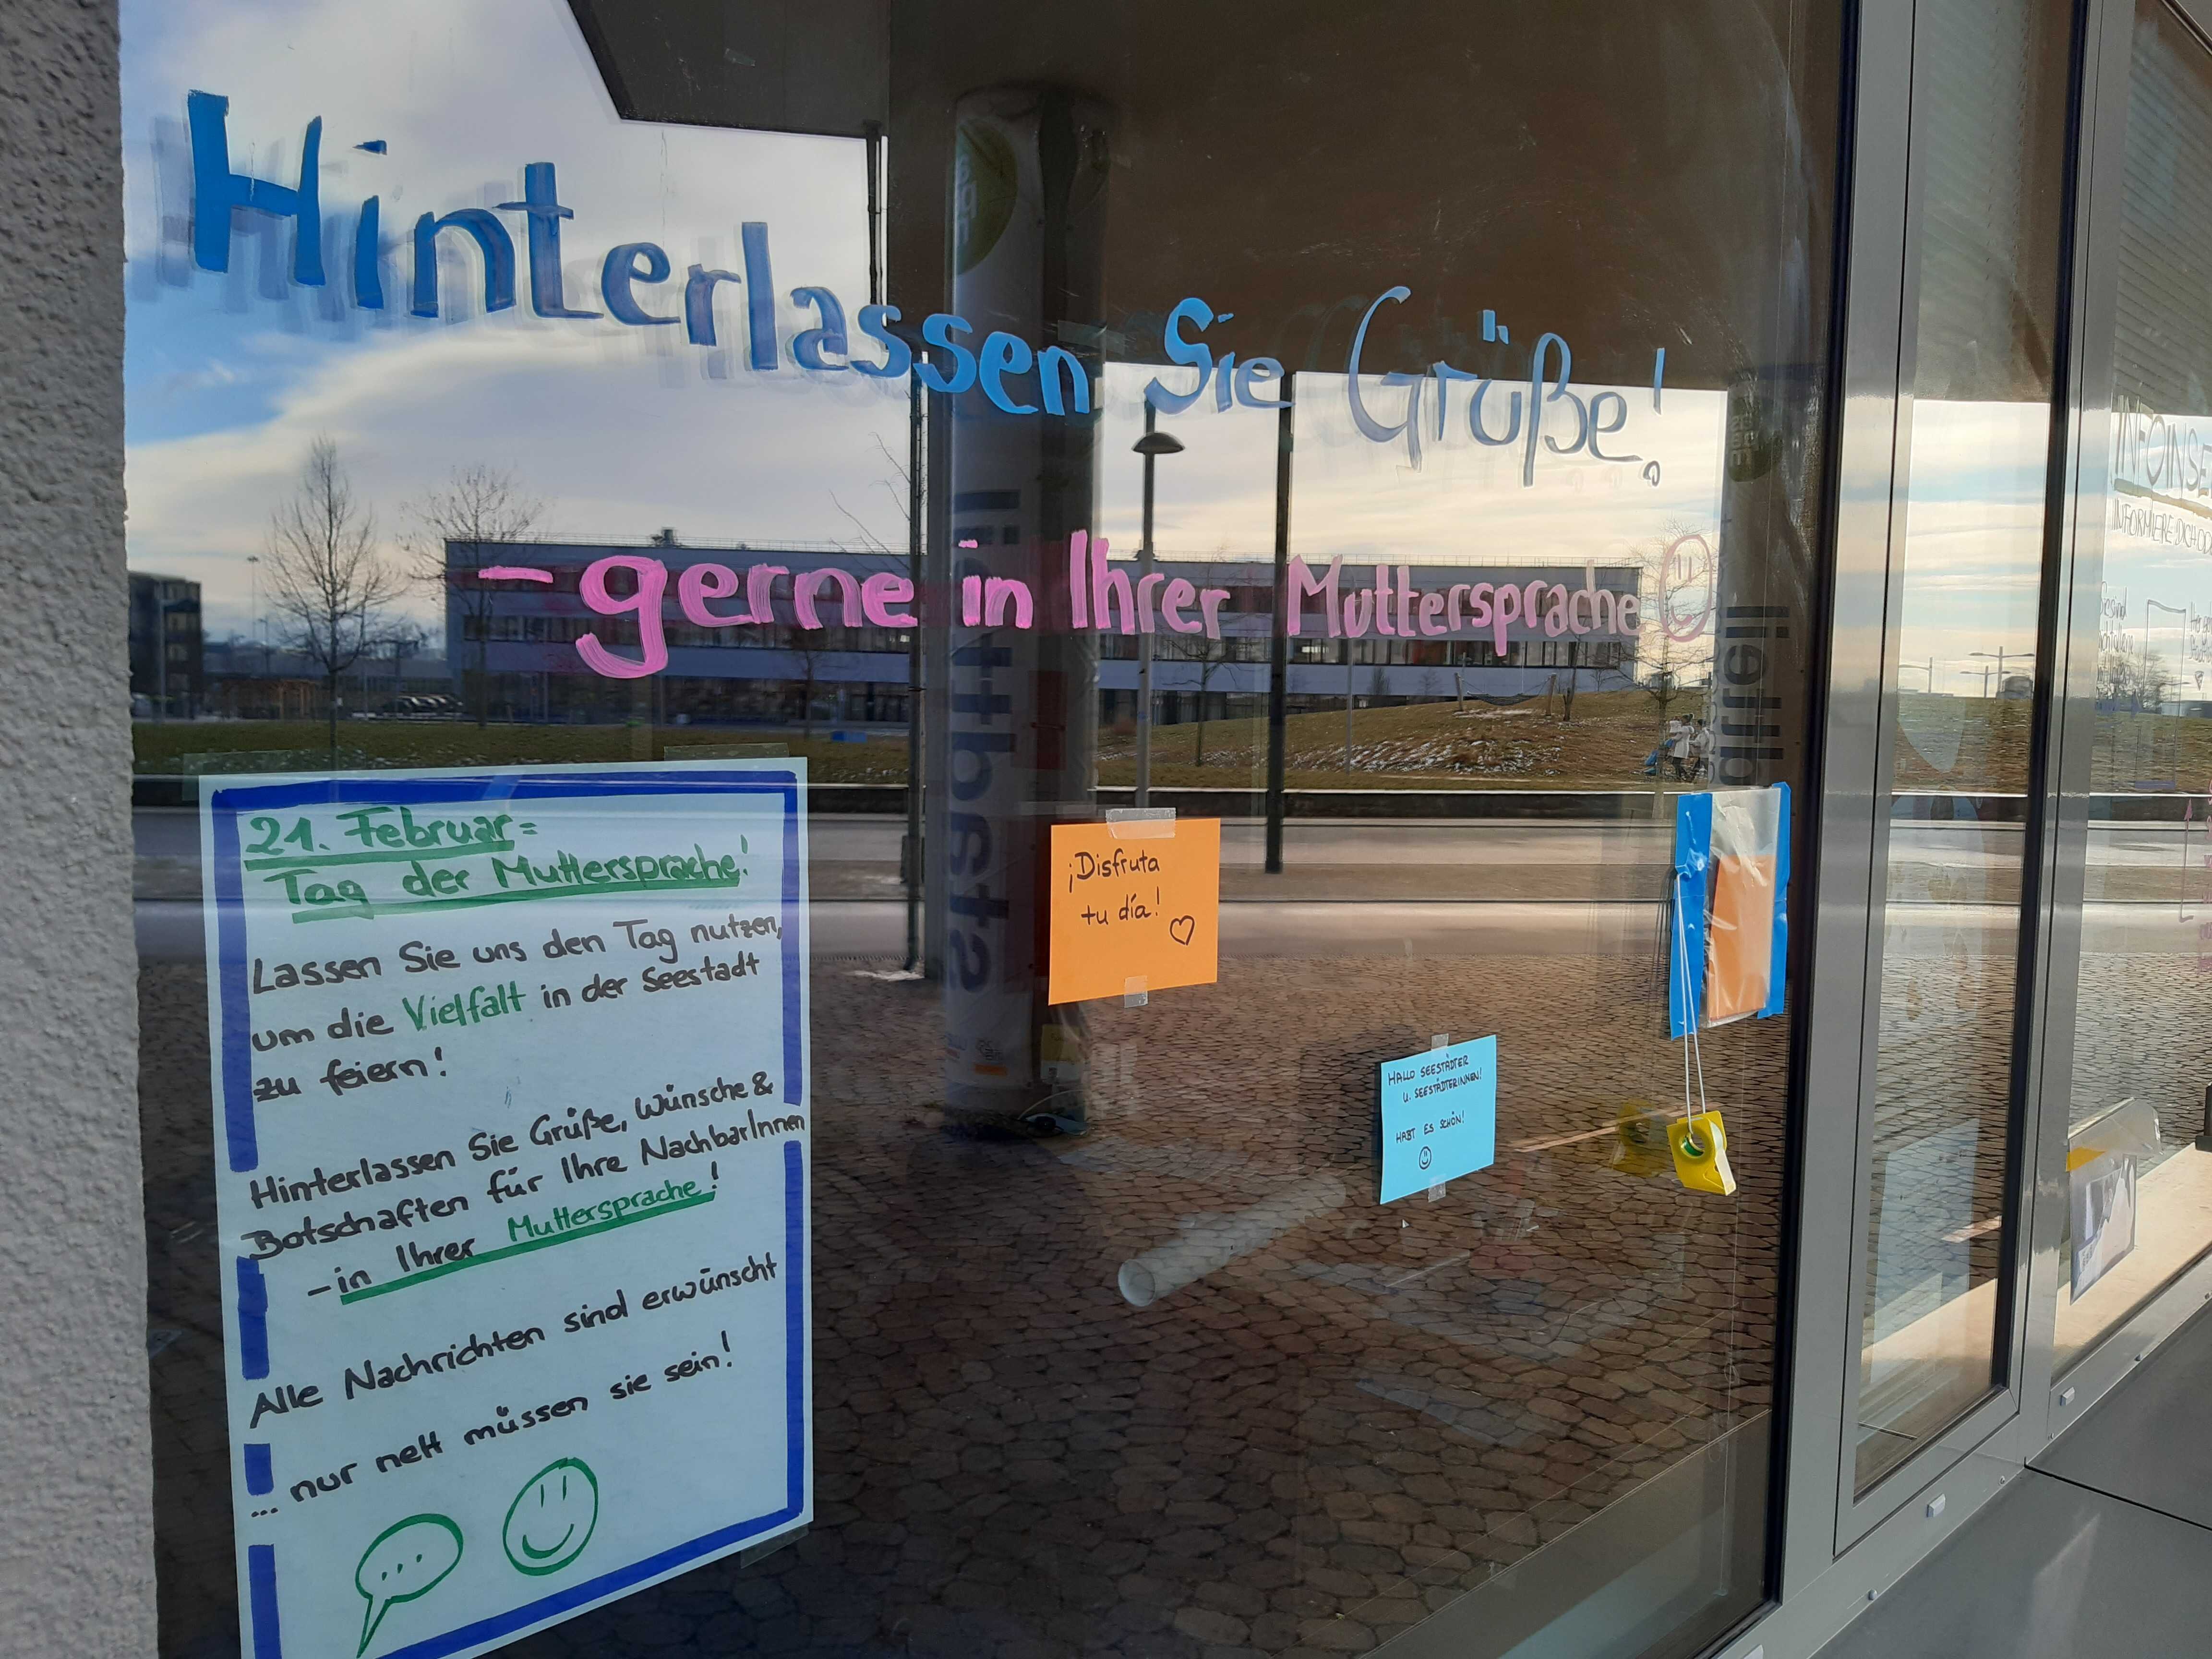 Hinterlassen Sie Grüße!
- gerne in Ihrer Muttersprache
21. Februar =
Tag der Muttersprache!
Lassen Sie uns den Tag nutzen,
um die Vielfalt in der Seestadt
zu feiern!
Hinterlassen Sie Grüße, Wünsche &
Botschaften für Ihre NachbarInnen
- in Ihrer Muttersprache!
Alle Nachrichten sind erwünscht
... nur nett müssen sie sein!
¡Disfruta
tu día!
HALLO SEESTÄDTER
U. SEESTÄDTERINNEN!
HABT ES SCHÖN!
INFOINSE
INFORMIERE DICH